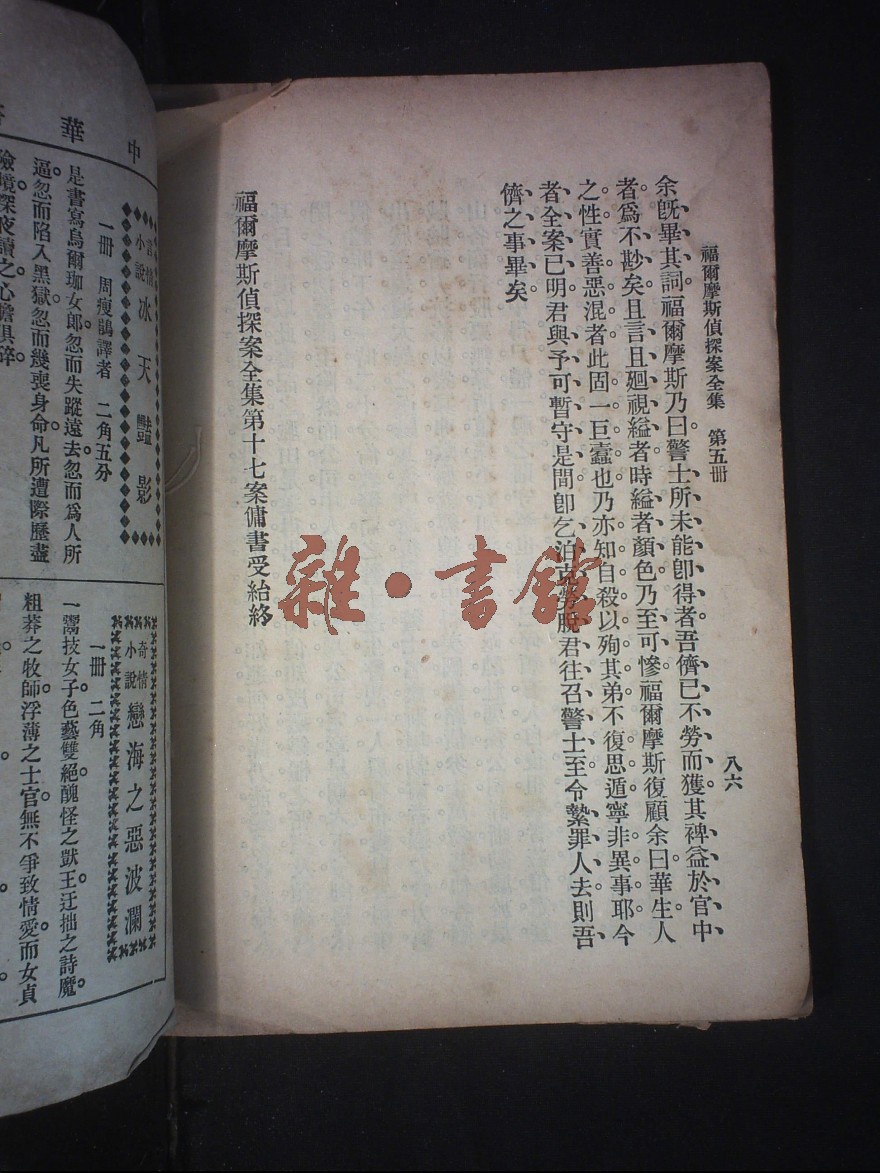 福爾摩斯偵探案全集　第五册
八六
余旣畢其詞福爾摩斯乃曰警士所未能卽得者吾儕已不勞而獲其裨益於官中
者爲不尠矣且言且廻視縊者時縊者顏色乃至可慘福爾摩斯復顧余曰華生人
之性實善惡混者此固一巨蠹也乃亦知自殺以殉其弟不復思遁寧非異事耶今
者全案已明君與予可暫守是間卽乞泊克勞脫君往召警士至令縶罪人去則吾
儕之事畢矣
福爾摩斯偵探案全集第十七案傭書受紿終
雜·書館
中華
言情小說 冰天豔影
一冊　周瘦鵑譯者　二角五分
是書寫烏爾珈女郎忽而失蹤遠去忽而爲人所
逼忽而陷入黑獄忽而幾喪身命凡所遭際歷盡
險境深夜讀之心膽俱碎
奇情小說 戀海之惡波瀾
一冊　二角
一鬻技女子色藝雙絕醜怪之獸王迂拙之詩魔
粗莽之牧師浮薄之士官無不爭致情愛而女貞